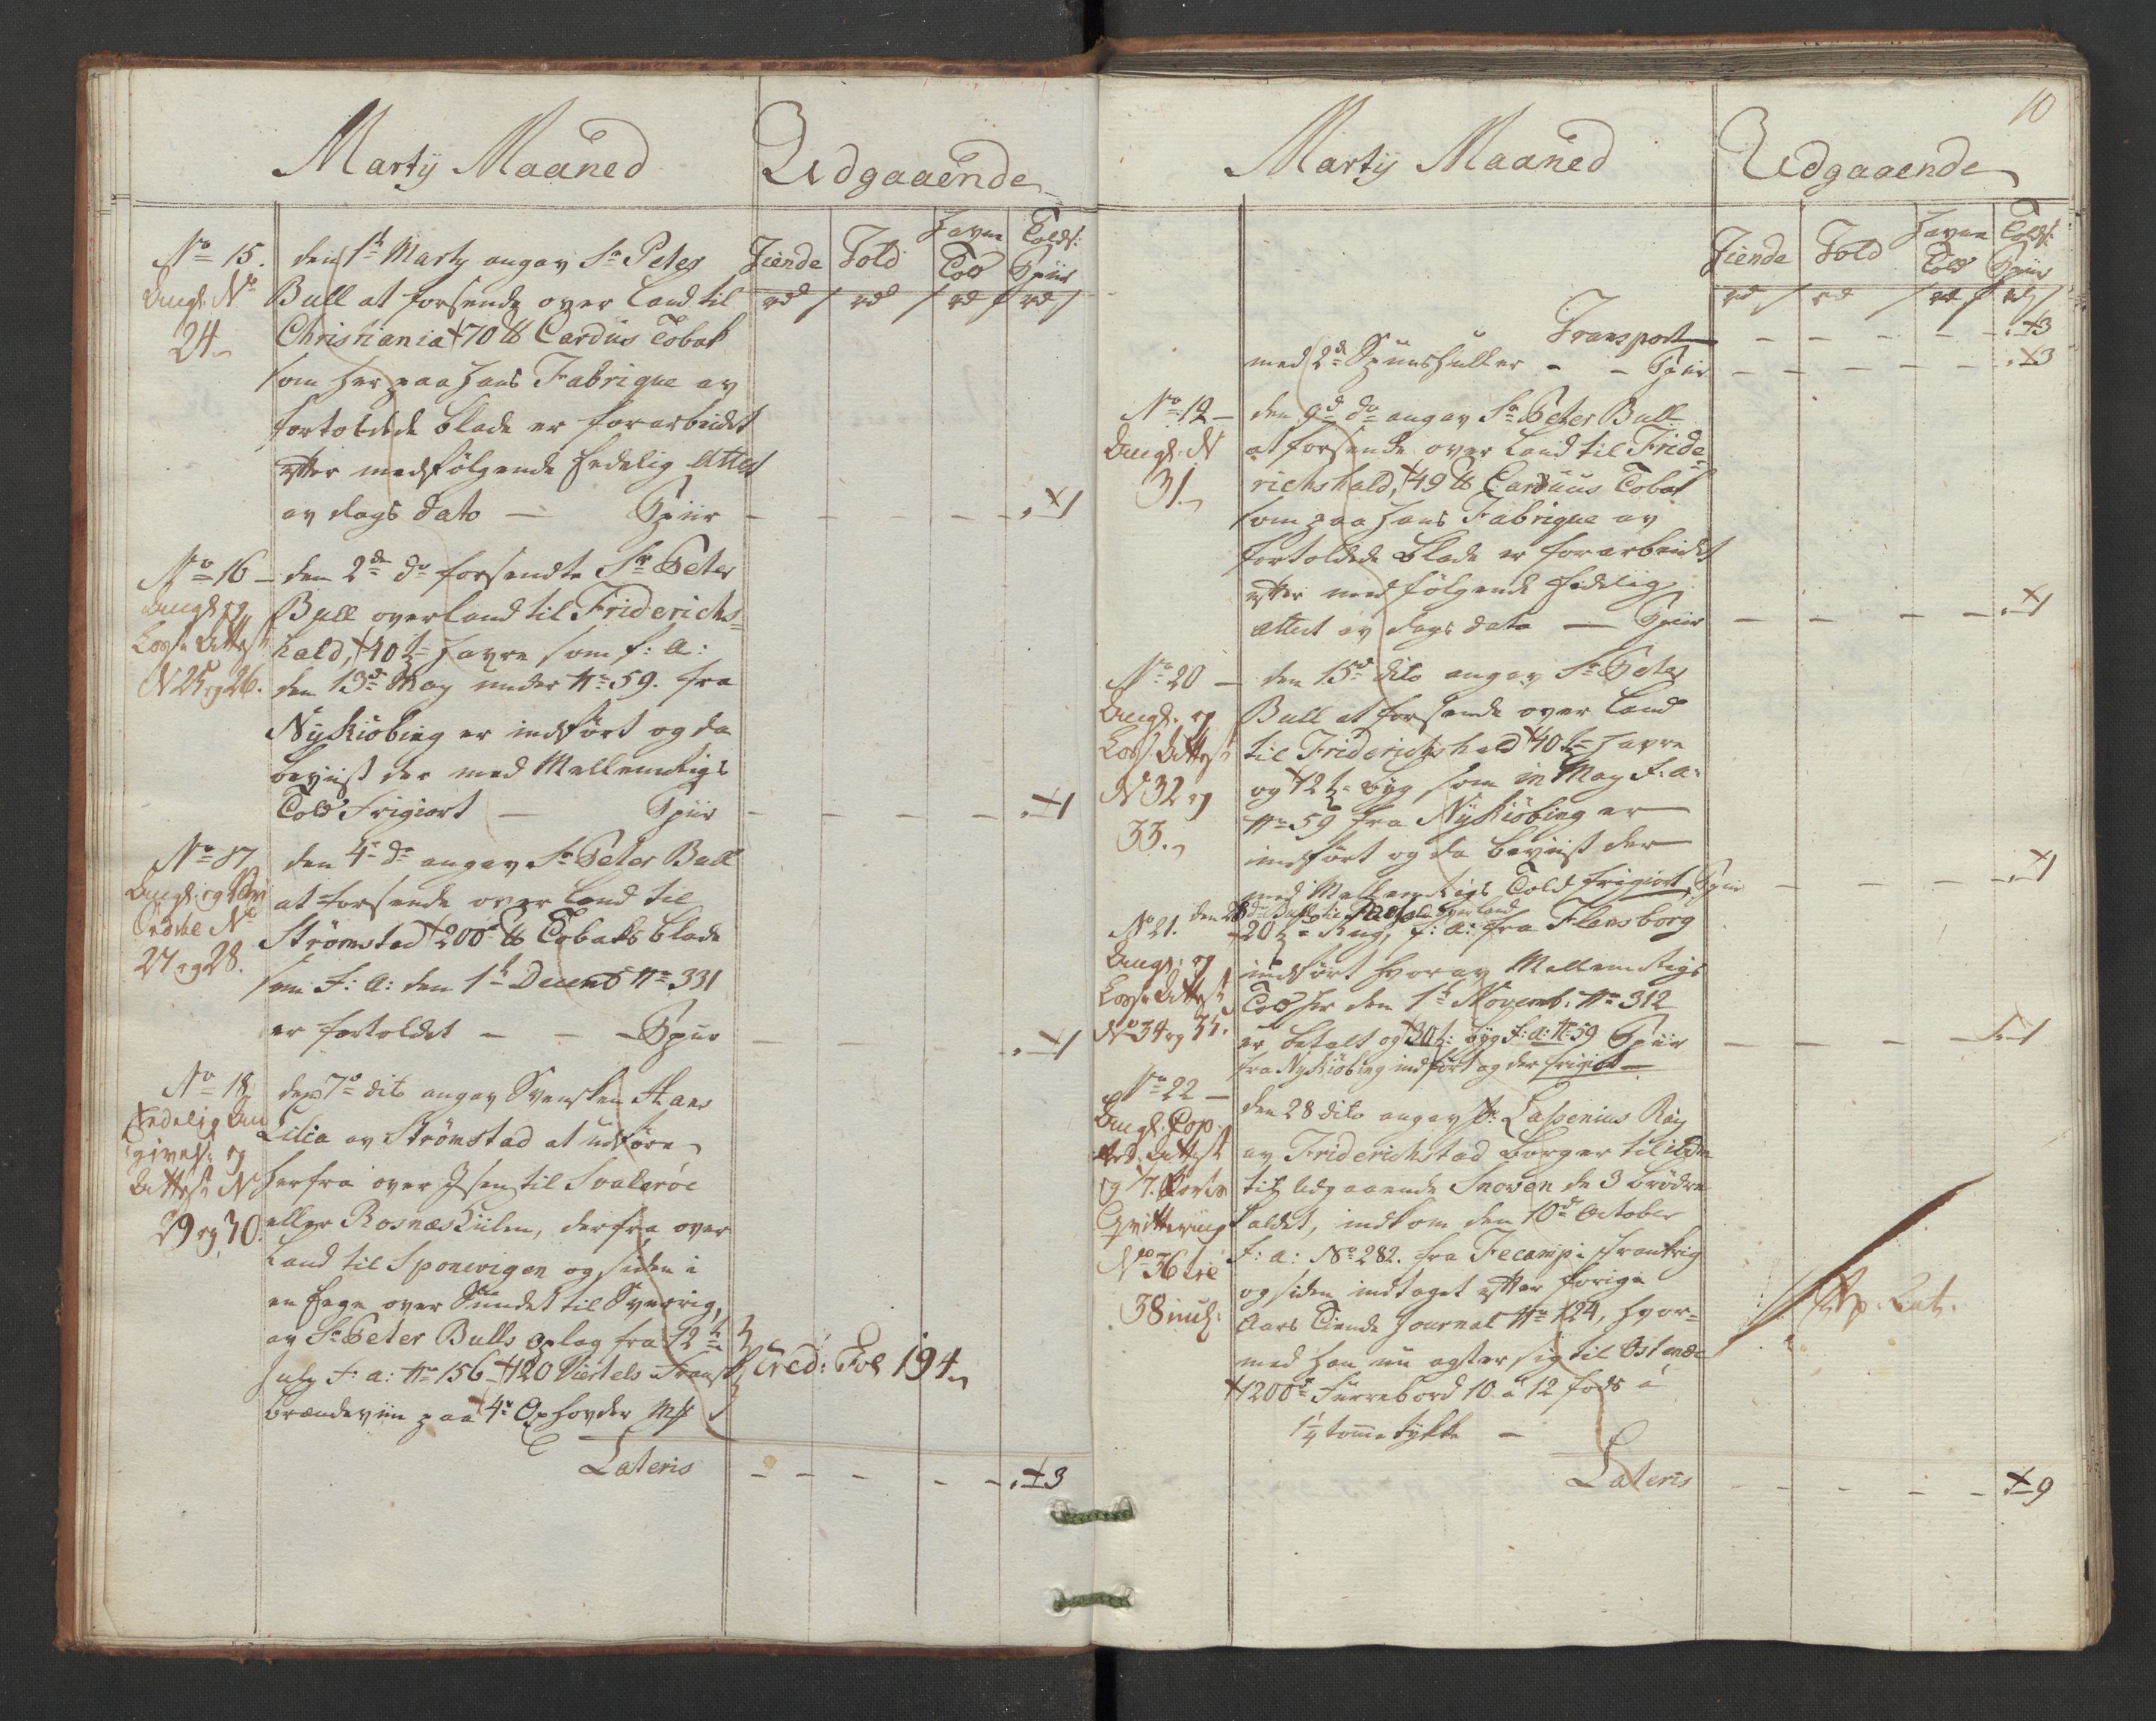 Martÿ Maaned
Udgaaende
Tiende Told Havne Told Toldst: Spiir
rd s rd s rd s rd s
No 15.
Angl. No
24
den 1te Marty angav Sr Peter
Bull at forsende over Land til
Christiania 70 ℔ Cardus Tobak
som her paa hans Fabrique av
fortoldede blade er forarbeidet
efter medfølgende Eedelig Attest
av dags dato — Spiir - - - - 1
No 16
Angl. og
Losse Attest
N 25 og 26.
den 2de do forsendte Sr Peter
Bull over Land til Friderichs
hald, 40 t Havre som f: a:
den 13de May under No 59. fra
Nykiöbing er indført og da
beviist der med Mellemrigs
Told frigiort — Spiir - - - - 1
No 17
Angl. og
No
27 og 28.
den 4de do angav Sr Peter Bull
at forsende over Land til
Strömstad 200 ℔ Tobaks blade
som f: a: den 1te Decemb No 331
er fortoldet - - - Spiir - - - - 1
No 18.
Eedelig An
givels: og
Attest N
29 og 30.
den 7de dito angav Svensken Hans
Lilia av Strömstad at udføre
herfra over Isen til Svaleröe
eller Rosnæs Kiilen, derfra over
Land til Sponvigen og siden i
en Sege over Sundet til Sverrig,
av Sr Peter Bulls Oplag fra 12te
July f: a: No 156 120 Viertels Fransk
Brændeviin paa 4re Oxhovder
Cred: Fol 194
Lateris - - - - - 3
10
Marty Maaned
Udgaaende
Tiende Told Havne Told Toldst: Spiir
rd s rd s rd s rd s
Transport - - - - - 3
med 2de Spunshuller - - Spiir - - - - - 3
No 19
Angl. N
31.
den 9de do angav Sr Peter Bull
at forsende over Land til Fride
richshald, 49 ℔ Carduus Tobak
som paa hans Fabrique av
fortoldede Blade er forarbeidet
efter medfølgende Eedelig
Attest av dags dato — Spiir - - - - 1
No 20
Angl. og
Loss Attest
N 32 og
33.
den 15de dito angav Sr Peter
Bull at forsende over Land
til Friderichshald 40 t Havre
og 12 t Byg som in May f: a:
No 59 fra Nykiöbing er
indført og da beviist der
med Mellemrigs Told frigiort Spiir - - - - 1
No 21.
Angl: og
Losse Attest
No 34 og 35.
den 28 do Bull til over Land
20 t Rug, f: a: fra Flensborg
indført hvorav Mellemrigs
Told her den 1te Novemb: No 312
er betalt og 30 t: Byg f: a: No 59 Spiir - - - - 1
fra Nykiöbing indført og der frigiort
No 22
Angl. Cop
Attest
og
Qvittering
No 36 til
38 incl:
den 28 dito angav Sr: Lassenius Roy
av Friderichstad Borger til
til Udgaaende Snoven de 3 Brødre
kaldet, indkom den 10de October
f: a: No 282. fra Fecamp i Frankrig
og siden indtaget efter forige
Aars Tiende Journal No 124, hvor-
med han nu agter sig til Ostende
1200de Furrebord 10 a 12 fods á
1¼ tomme tykke —
Lateris - - - - - 9